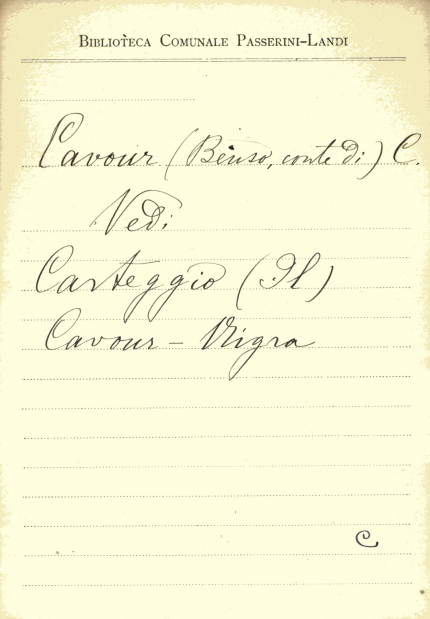 BIBLIOTECA COMUNALE PASSERINI-LANDI
Cavour (Benso, conte di) C.
Vedi
Carteggio (Il)
Cavour - Nigra
C